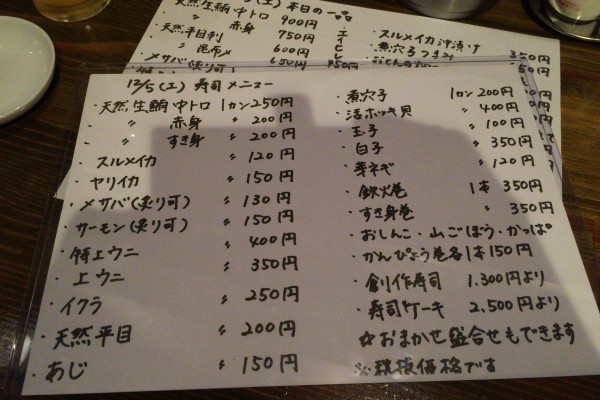 (土)本日の一品
・天然生鮪中トロ 900円
〃 赤身 750円
・天然平目刺
〃 昆布〆 600円
・メサバ(炙り可) 650円
・スルメイカ沖漬け
・煮穴子つまみ 350円
12/5(土)寿司メニュー
・天然生鮪中トロ 1カン250円
・〃 赤身 〃 200円
・〃 すき身 〃 200円
・スルメイカ 〃 120円
・ヤリイカ 〃 150円
・メサバ(炙り可) 〃 130円
・サーモン(炙り可) 〃 150円
・特上ウニ 〃 400円
・上ウニ 〃 350円
・イクラ 〃 250円
・天然平目 〃 200円
・あじ 〃 150円
・煮穴子 1カン200円
・活ホッキ貝 〃 400円
・玉子 〃 100円
・白子 〃 350円
・芽ネギ 〃 120円
・鉄火巻 1本 350円
・すき身巻 〃 350円
・おしんこ・山ごぼう・かっぱ
・かんぴょう巻各1本150円
・創作寿司 1.300円より
・寿司ケーキ 2.500円より
☆おまかせ盛合せもできます
※税抜価格です